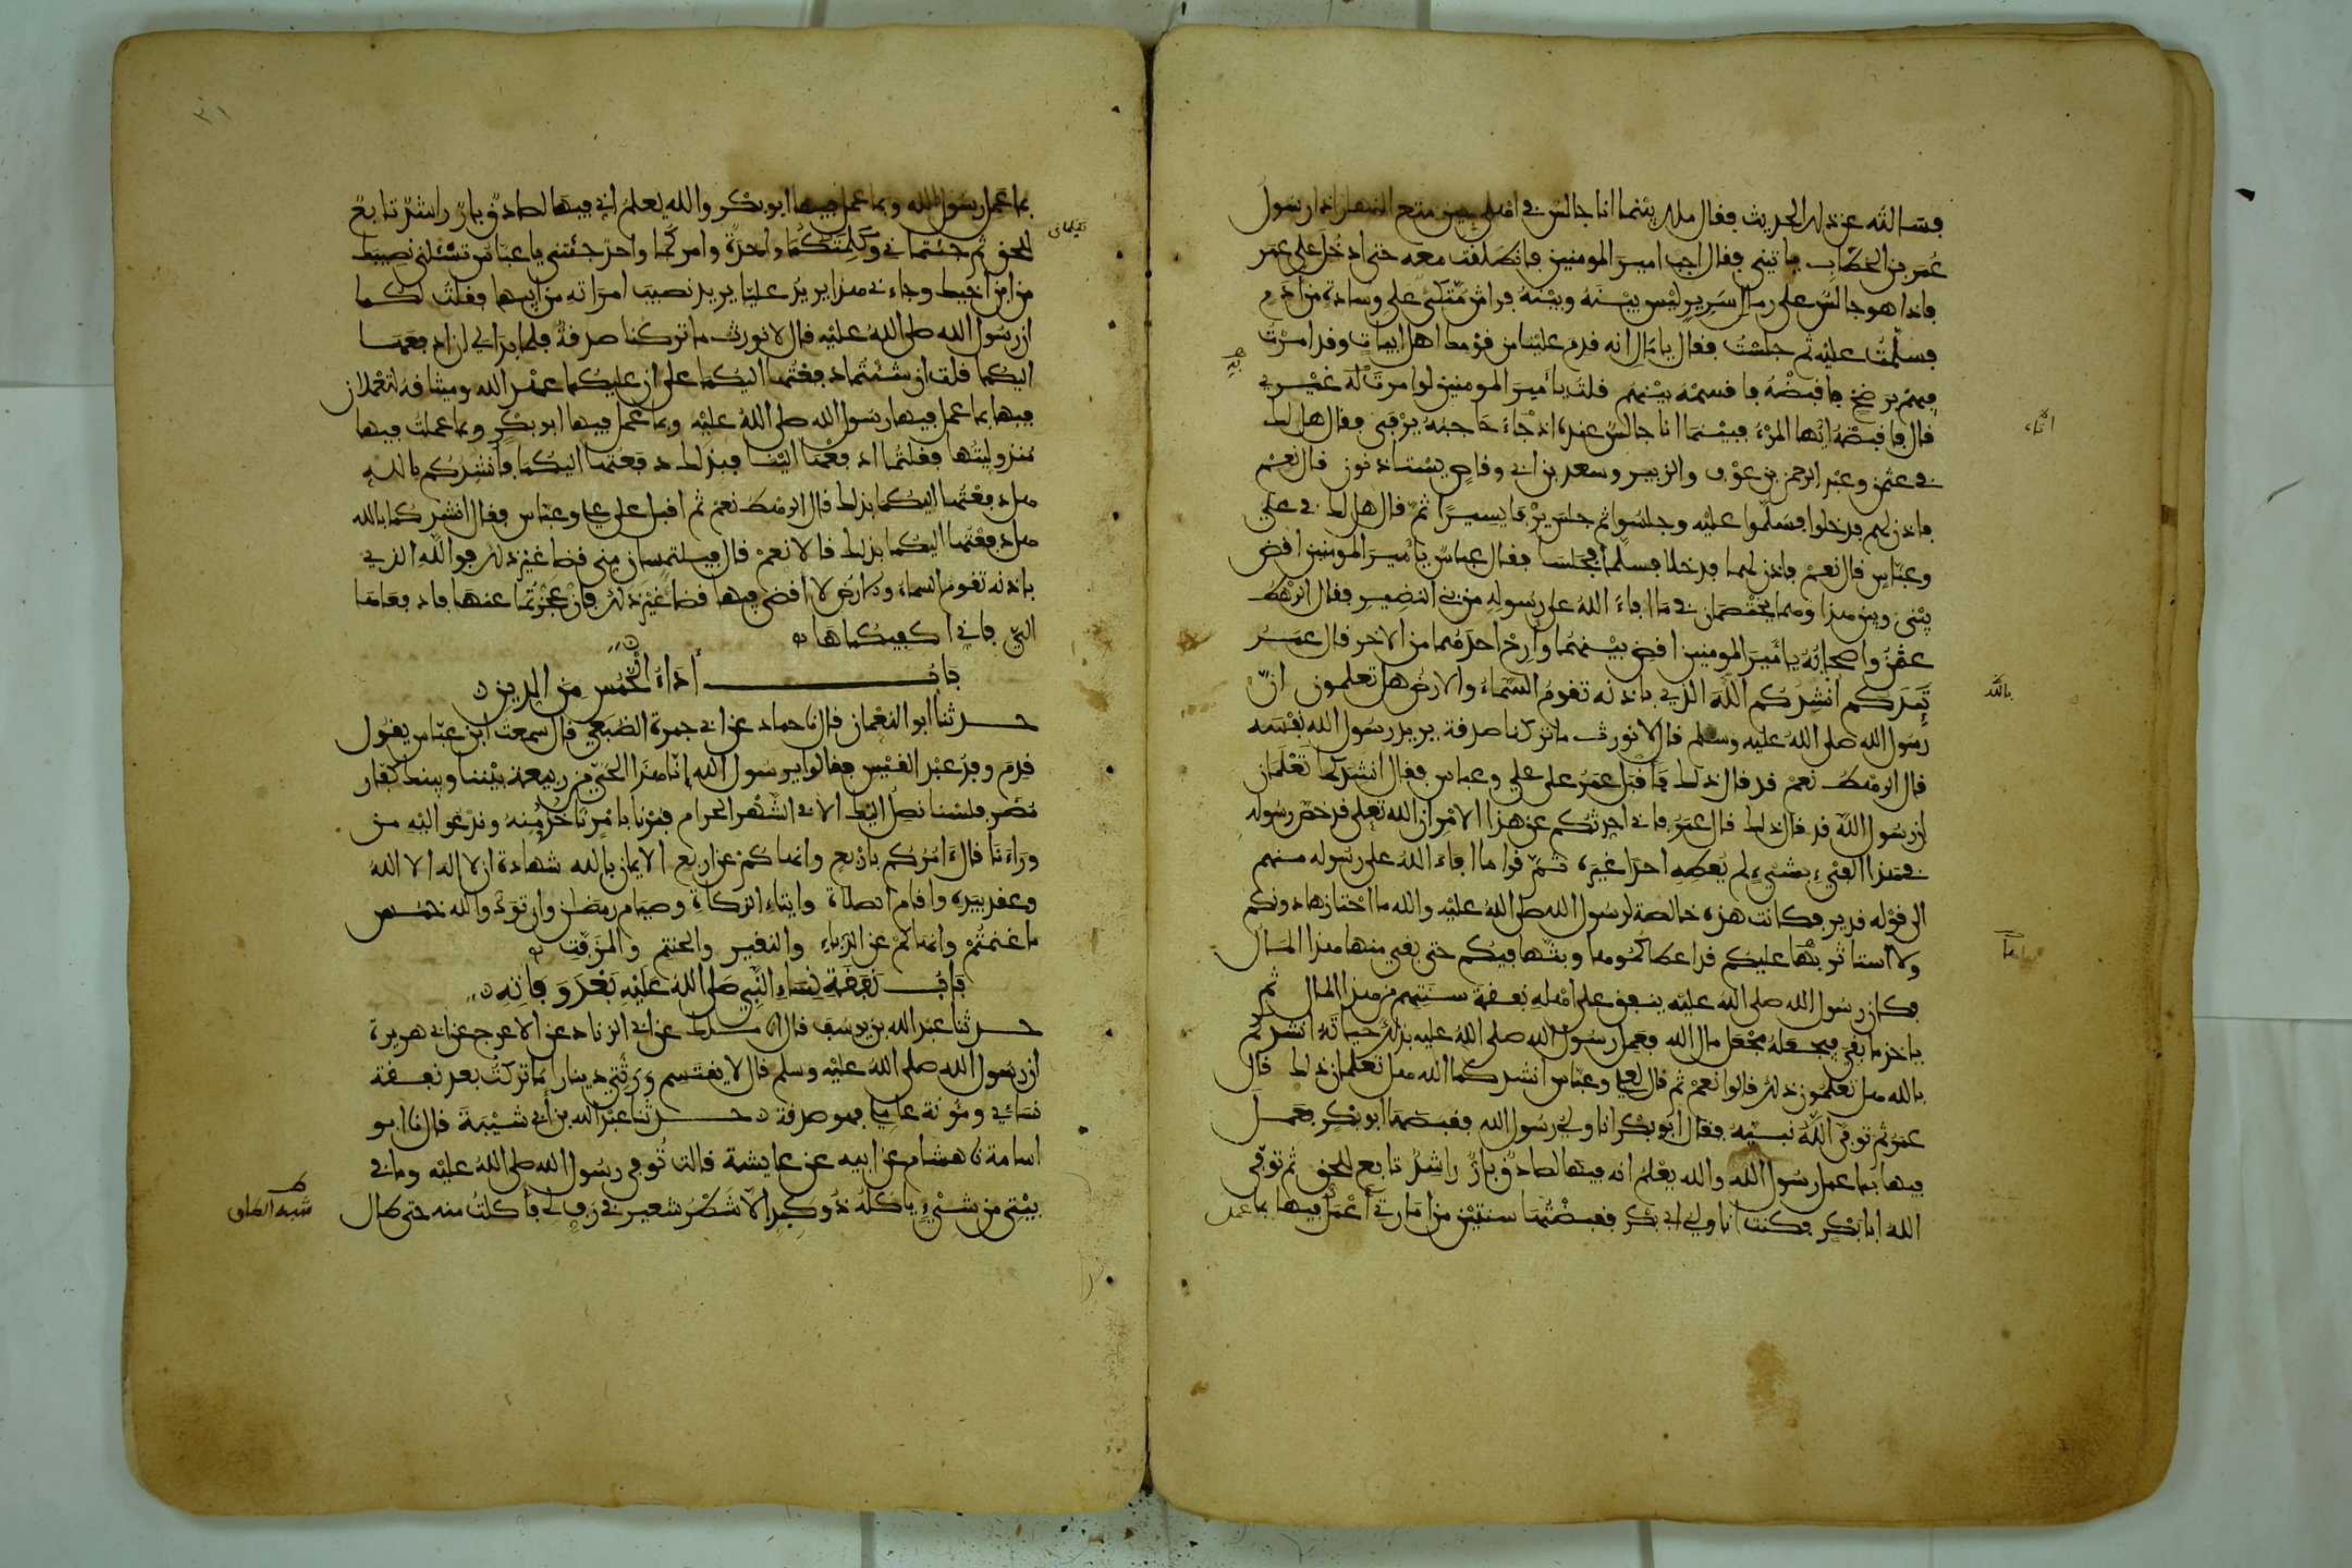 فسالته عن ذلك الحديث فقال ملك بينما انا جالس في اهلي حين متع النهار اذا رسول
عمر بن الخطاب ياتيني فقال اجب امير المومنين فانطلقت معه حتى ادخل على عمر
فاذا هو جالس على رمال سرير ليس بينه وبينه فراش متكئ على وسادة من ادم
فسلمت عليه ثم جلست فقال يا مال انه قدم علينا من قومك اهل ابيات وقد امرت
فيهم برضخ فاقبضه فاقسمه بينهم قلت يا امير المومنين لو امرت له غيري
قال فاقبضه ايها المرء فبينما انا جالس عنده اذ جاء حاجبه يرفى فقال هل لك
في عثمن وعبد الرحمن بن عوف والزبير وسعد بن ابي وقاص يستاذنون قال نعم
فاذن لهم فدخلوا فسلموا عليه وجلسوا ثم جلس يرفا يسيرا ثم قال هل لك في علي
وعباس قال نعم فاذن لهما فدخلا فسلما فجلسا فقال عباس يا امير المومنين اقض
بيني وبين هذا وهما يختصمان في ما افاء الله على رسوله من بني النضير فقال الرهط
عثمن واصحابه يا امير المومنين اقض بينهما وارح احدهما من الاخر قال عمر
تيدكم انشدكم الله الذي باذنه تقوم السماء والارض هل تعلمون ان
بالله
رسول الله صلى الله عليه وسلم قال لا نورث ما تركنا صدقة يريد رسول الله نفسه
قال الرهط نعم قد قال ذلك فاقبل عمر على علي وعباس فقال انشدكما تعلمان
ان رسول الله قد قال ذلك قال عمر فاني احدثكم عن هذا الامر ان الله تعلى قد خص رسوله
في هذا الفيء بشيء لم يعطه احدا غيره ثم قرا ما افاء الله على رسوله منهم
الى قوله قدير فكانت هذه خالصة لرسول الله صلى الله عليه والله ما احتازها دونكم
ولا استاثر بها عليكم قد اعطاكموها وبثها فيكم حتى بقي منها هذا المال
فكان رسول الله صلى الله عليه ينفق على اهله نفقة سنتهم من هذا المال ثم
ياخذ ما بقي فيجعله مجعل مال الله فعمل رسول الله صلى الله عليه بذلك حياته انشدكم
بالله هل تعلمون ذلك قالوا نعم ثم قال لعلي وعباس انشدكما الله هل تعلمان ذلك قال
عمر ثم توفى الله نبيه فقال ابو بكر انا ولي رسول الله فقبضها ابو بكر فعمل
فيها بما عمل رسول الله والله يعلم انه فيها لصادق بار راشد تابع للحق ثم توفى
الله ابا بكر فكنت انا ولي ابي بكر فقبضتها سنتين من امارتي اعمل فيها بما عمل
٣١
بما عمل رسول الله وبما عمل فيها ابو بكر والله يعلم اني فيها لصادق بار راشد تابع
للحق ثم جئتماني وكلمتكما واحدة وامركما واحد جئتني يا عباس تسئلني نصيبك
من ابن اخيك وجاءني هذا يريد عليا يريد نصيب امراته من ابيها فقلت لكما
ان رسول الله صلى الله عليه قال لا نورث ما تركنا صدقة فلما بدا لي ان ادفعها
اليكما قلت ان شئتما دفعتها اليكما على ان عليكما عهد الله وميثاقه لتعملان
فيها بما عمل فيها رسول الله صلى الله عليه وبما عمل فيها ابو بكر وبما عملت فيها
منذ وليتها فقلتما ادفعها الينا فبذلك دفعتها اليكما فانشدكم بالله
هل دفعتها اليكما بذلك قال الرهط نعم ثم اقبل على علي وعباس فقال انشدكما بالله
هل دفعتها اليكما بذلك قالا نعم قال فتلتمسان مني قضا غير ذلك فوالله الذي
باذنه تقوم السماء والارض لا اقضي فيها قضا غير ذلك فان عجزتما عنها فادفعاها
الي فاني اكفيكماها
باب اداء الخمس من الدين
حدثنا ابو النعمان قال نا حماد عن ابي جمرة الضبعي قال سمعت ابن عباس يقول
قدم وفد عبد القيس فقالوا يرسول الله انا هذا الحي من ربيعة بيننا وبينك كفار
مضر فلسنا نصل اليك الا في الشهر الحرام فمرنا بامر ناخذ منه وندعو اليه من
وراءنا قال امركم باربع وانهاكم عن اربع الايمان بالله شهادة ان لا اله الا الله
وعقد بيده واقام الصلاة وايتاء الزكاة وصيام رمضان وان تودوا لله خمس
ما غنمتم وانهاكم عن الدباء والنقير والحنتم والمزفت
باب نفقة نساء النبي صلى الله عليه بعد وفاته
حدثنا عبد الله بن يوسف قال انا ملك عن ابي الزناد عن الاعرج عن ابي هريرة
ان رسول الله صلى الله عليه وسلم قال لا يقتسم ورثتي دينارا ما تركت بعد نفقة
نسائي ومؤنة عاملي فهو صدقة حدثنا عبد الله بن ابي شيبة قال نا ابو
اسامة نا هشام عن ابيه عن عايشة قالت توفي رسول الله صلى الله عليه وما في
بيتي من شيء ياكله ذو كبد الا شطر شعير في رف لي فاكلت منه حتى طال